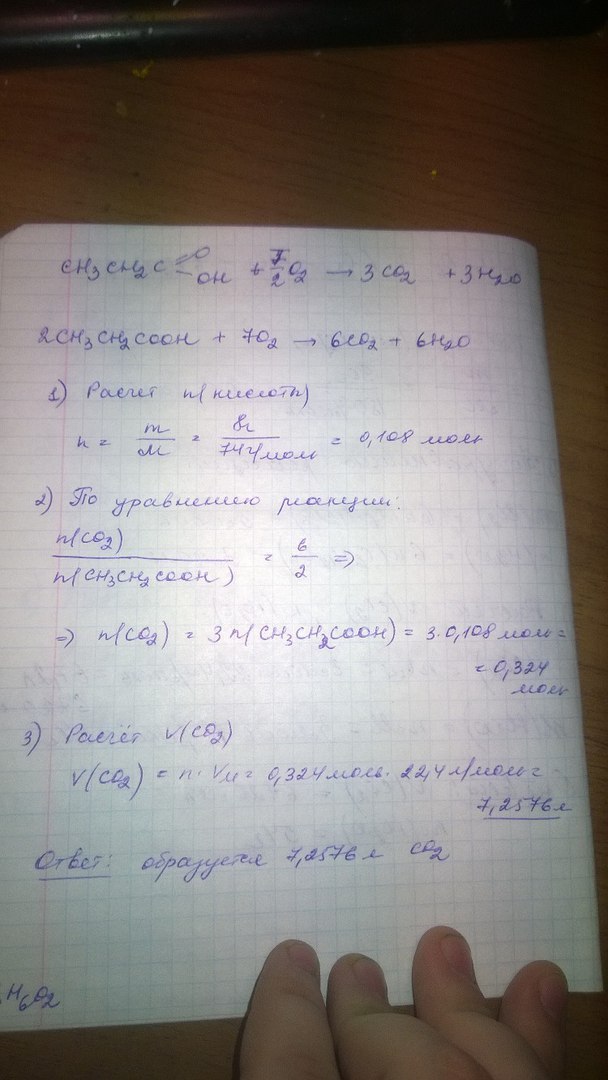 CH3CH2C=O-OH + 7/2 O2 → 3CO2 + 3H2O
2CH3CH2COOH + 7O2 → 6CO2 + 6H2O
1) Расчет n(кислоты)
n = m/M = 8г/74г/моль = 0,108 моль
2) По уравнению реакции:
n(CO2)/n(CH3CH2COOH) = 6/2 =>
=> n(CO2) = 3n(CH3CH2COOH) = 3·0,108 моль =
= 0,324
моль
3) Расчёт V(CO2)
V(CO2) = n·VM = 0,324 моль·22,4 л/моль =
7,2576 л
Ответ: образуется 7,2576 л CO2
H6O2